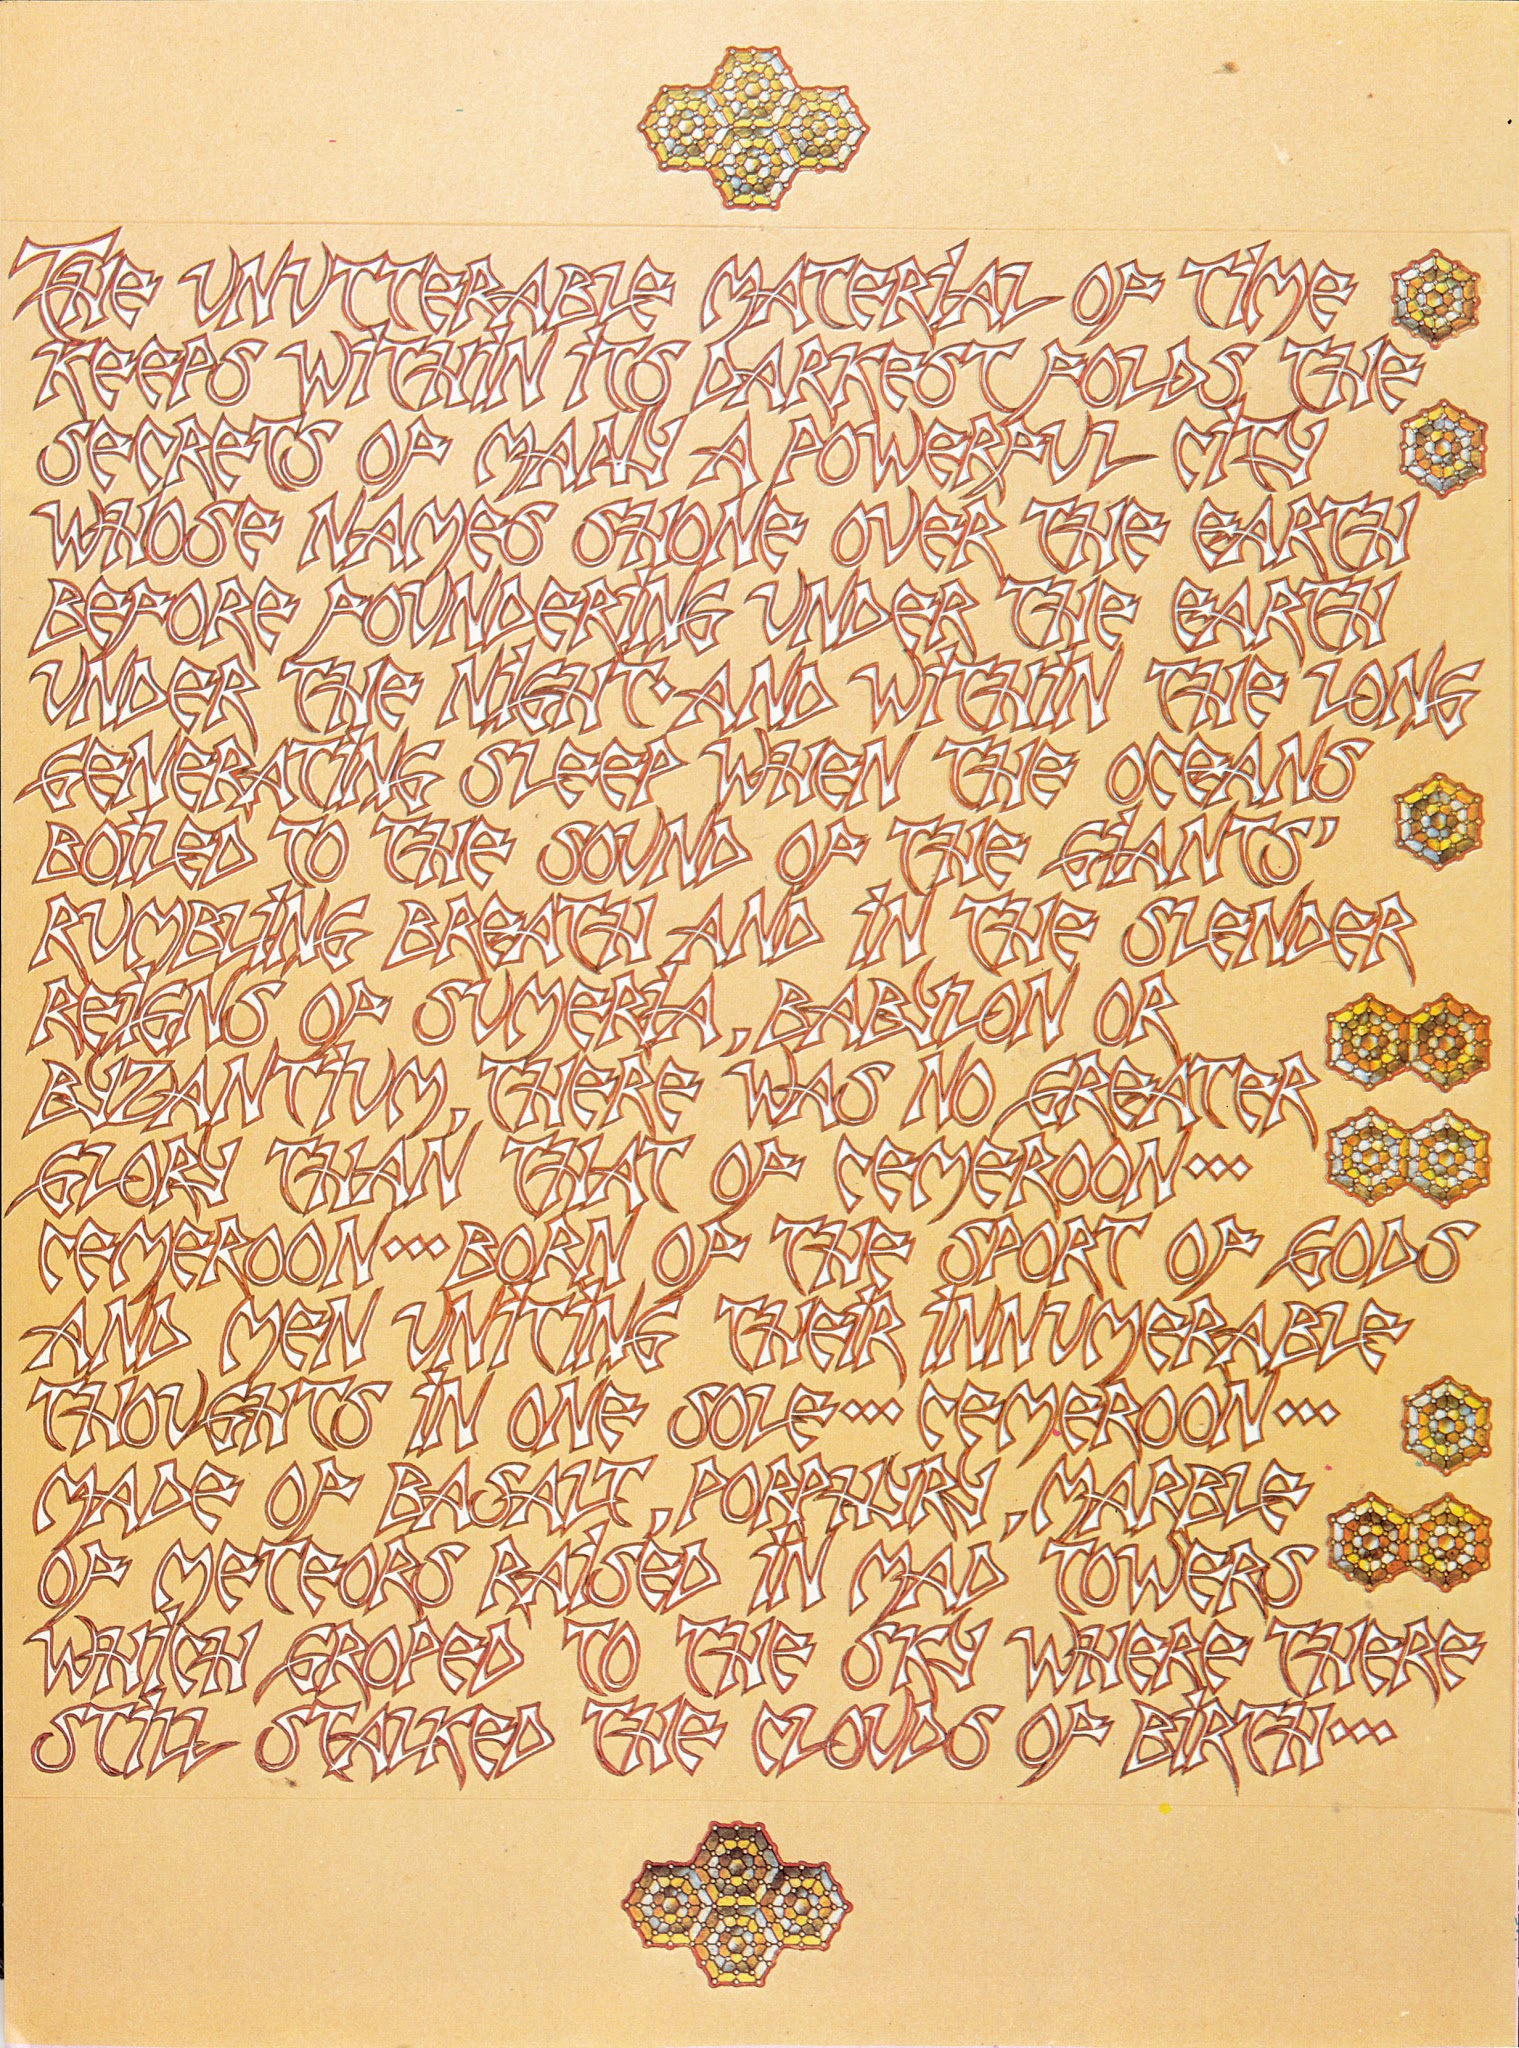 THE UNUTTERABLE MATERIAL OF TIME
KEEPS WITHIN ITS DARKEST FOLDS THE
SECRETS OF MANY A POWERFUL CITY
WHOSE NAMES SHONE OVER THE EARTH
BEFORE FOUNDERING UNDER THE EARTH
UNDER THE NIGHT. AND WITHIN THE LONG
GENERATING SLEEP WHEN THE OCEANS
BOILED TO THE SOUND OF THE GIANTS'
RUMBLING BREATH AND IN THE SLENDER
REIGNS OF SUMERIA, BABYLON OR
BYZANTIUM, THERE WAS NO GREATER
GLORY THAN THAT OF CEMEROON...
CEMEROON... BORN OF THE SPORT OF GODS
AND MEN UNITING THEIR INNUMERABLE
THOUGHTS IN ONE SOLE... CEMEROON...
MADE OF BASALT, PORPHYRY, MARBLE
OF METEORS RAISED IN MAD TOWERS
WHICH GROPED TO THE SKY WHERE THERE
STILL STALKED THE CLOUDS OF BIRTH...